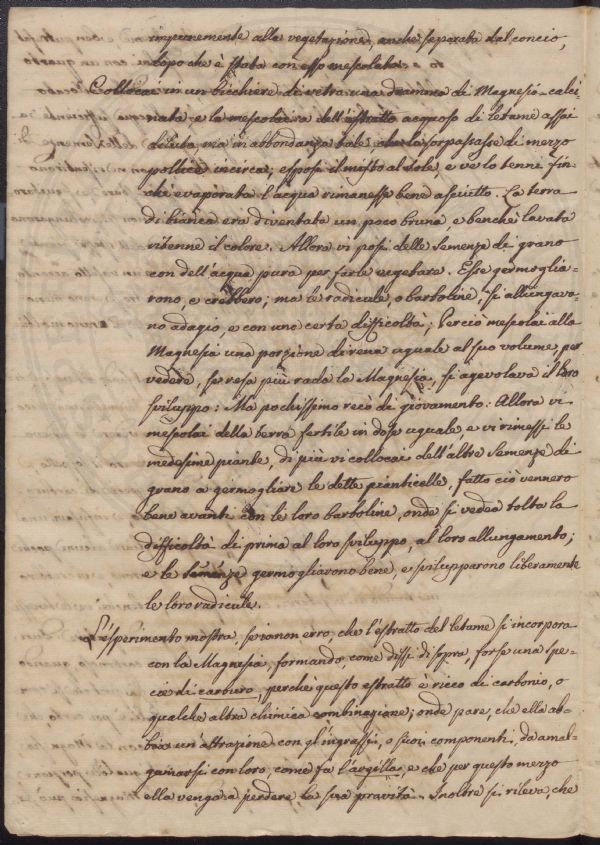 impunemente alla vegetazione, anche separata dal concio,
dopo che è stata con esso mescolata.
Collocai in un bicchiere di vetro una dramma di Magnesia calci-
nata e la mescolai a dell'estratto acquoso di letame assai
diluto, ma in abbondanza tale, che la sorpassasse di mezzo
pollice incirca; esposi il misto al Sole, e ve lo tenni fin-
chè evaporata l'acqua rimanesse bene asciutto. La terra
di bianca era diventata un poco bruna, e benchè lavata
ritenne il colore. Allora vi posi delle semenze di grano
con dell'acqua pura per farle vegetare. Esse germoglia-
rono, e crebbero; ma le radicule, o barboline, si allungava-
no adagio, e con una certa difficoltà; Perciò mescolai alla
Magnesia una porzione di rena uguale al suo volume, per
vedere, se resa più rada la Magnesia, si agevolava il loro
sviluppo: Ma pochissimo recò di giovamento: Allora vi
mescolai della terra fertile in dose uguale, e vi rimessi le
medesime piante, di più vi collocai dell'altre semenze di
grano a germogliare le dette pianticelle, fatto ciò vennero
bene avanti con le loro barboline, onde si vedea tolta la
difficoltà di prima al loro sviluppo, al loro allungamento;
e le semenze germogliarono bene, e svilupparono liberamente
le loro radicule.
L'esperimento mostra, se io non erro, che l'estratto del letame si incorpora
con la Magnesia, formando, come dissi di sopra, forse una spe-
cie di carburo, perchè questo estratto è ricco di carbonio, o
qualche altra chimica combinazione; onde pare, che ella ab-
bia un'attrazione con gl'ingrassi, o suoi componenti, da amal-
gamarsi con loro, come fa l'argilla, e che per questo mezzo
ella venga a perdere la sua pravità. Inoltre si rileva, che